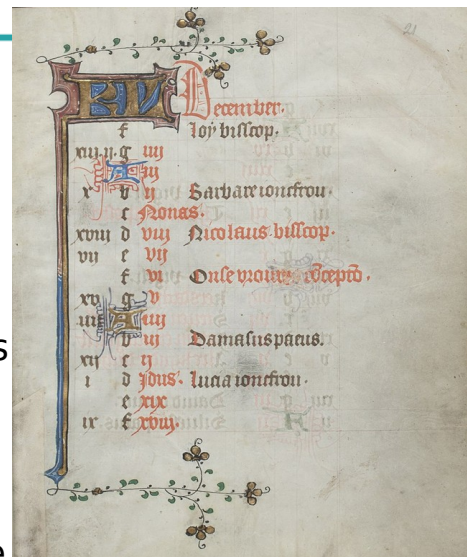 21
KL December.
f loy bisscop.
xiii .ii. g iiij
A iij
x b ij Barbare ioncfrou.
c Nonas.
xviii d viij Nicolaus bisscop.
vii e vij
f vi Onse
xv g v
A iiij
b iij Damasus paeus.
xii c ij
i d Idus. Lucia ioncfrou.
e xix
ix f xviij.
s
e